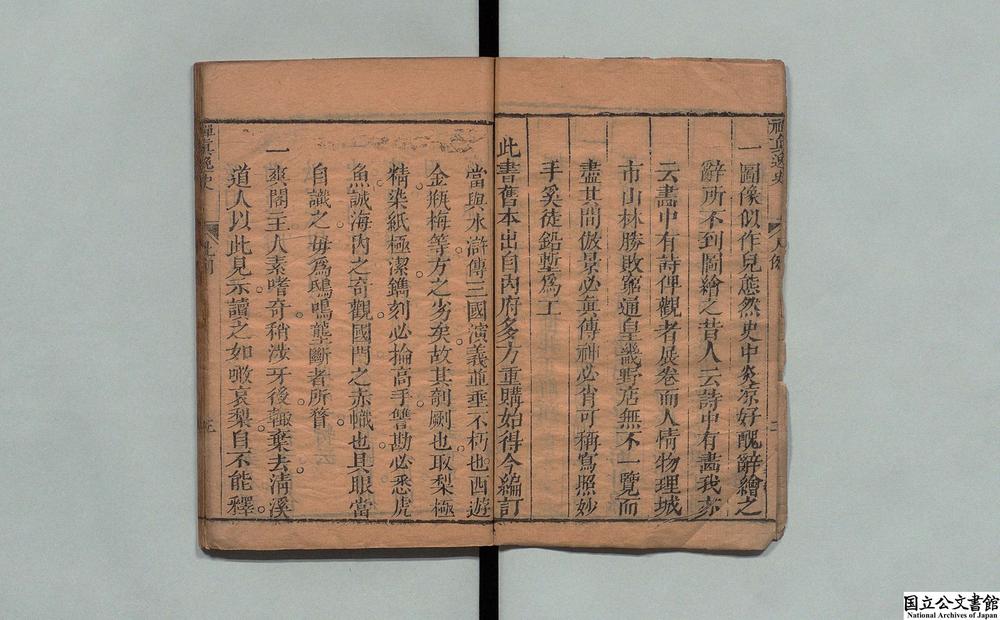 禪真逸史
凡例
二
一圖像似作兒態然史中炎凉好醜辭繪之
辭所不到圖繪之昔人云詩中有畵我亦
云畵中有詩俾觀者展卷而人情物理城
市山林勝敗窮通皇畿野店無不一覽而
盡其間倣景必眞傳神必肖可稱寫照妙
手奚徒鉛塹爲工
此書舊本出自內府多方重購始得今編訂
當與水滸傳三國演義並垂不朽也西遊
金瓶梅等方之劣矣故其剞劂也取梨極
精染紙極潔鐫刻必掄高手讐勘必悉虎
魚誠海內之奇觀國門之赤幟也具眼當
自識之毋爲鴟鳴壟斷者所瞀
一爽閣主人素嗜奇稍汝牙後輙棄去淸溪
道人以此見示讀之如噉哀梨自不能釋
禪眞逸史
凡例
国立公文書館
National Archives of Japan